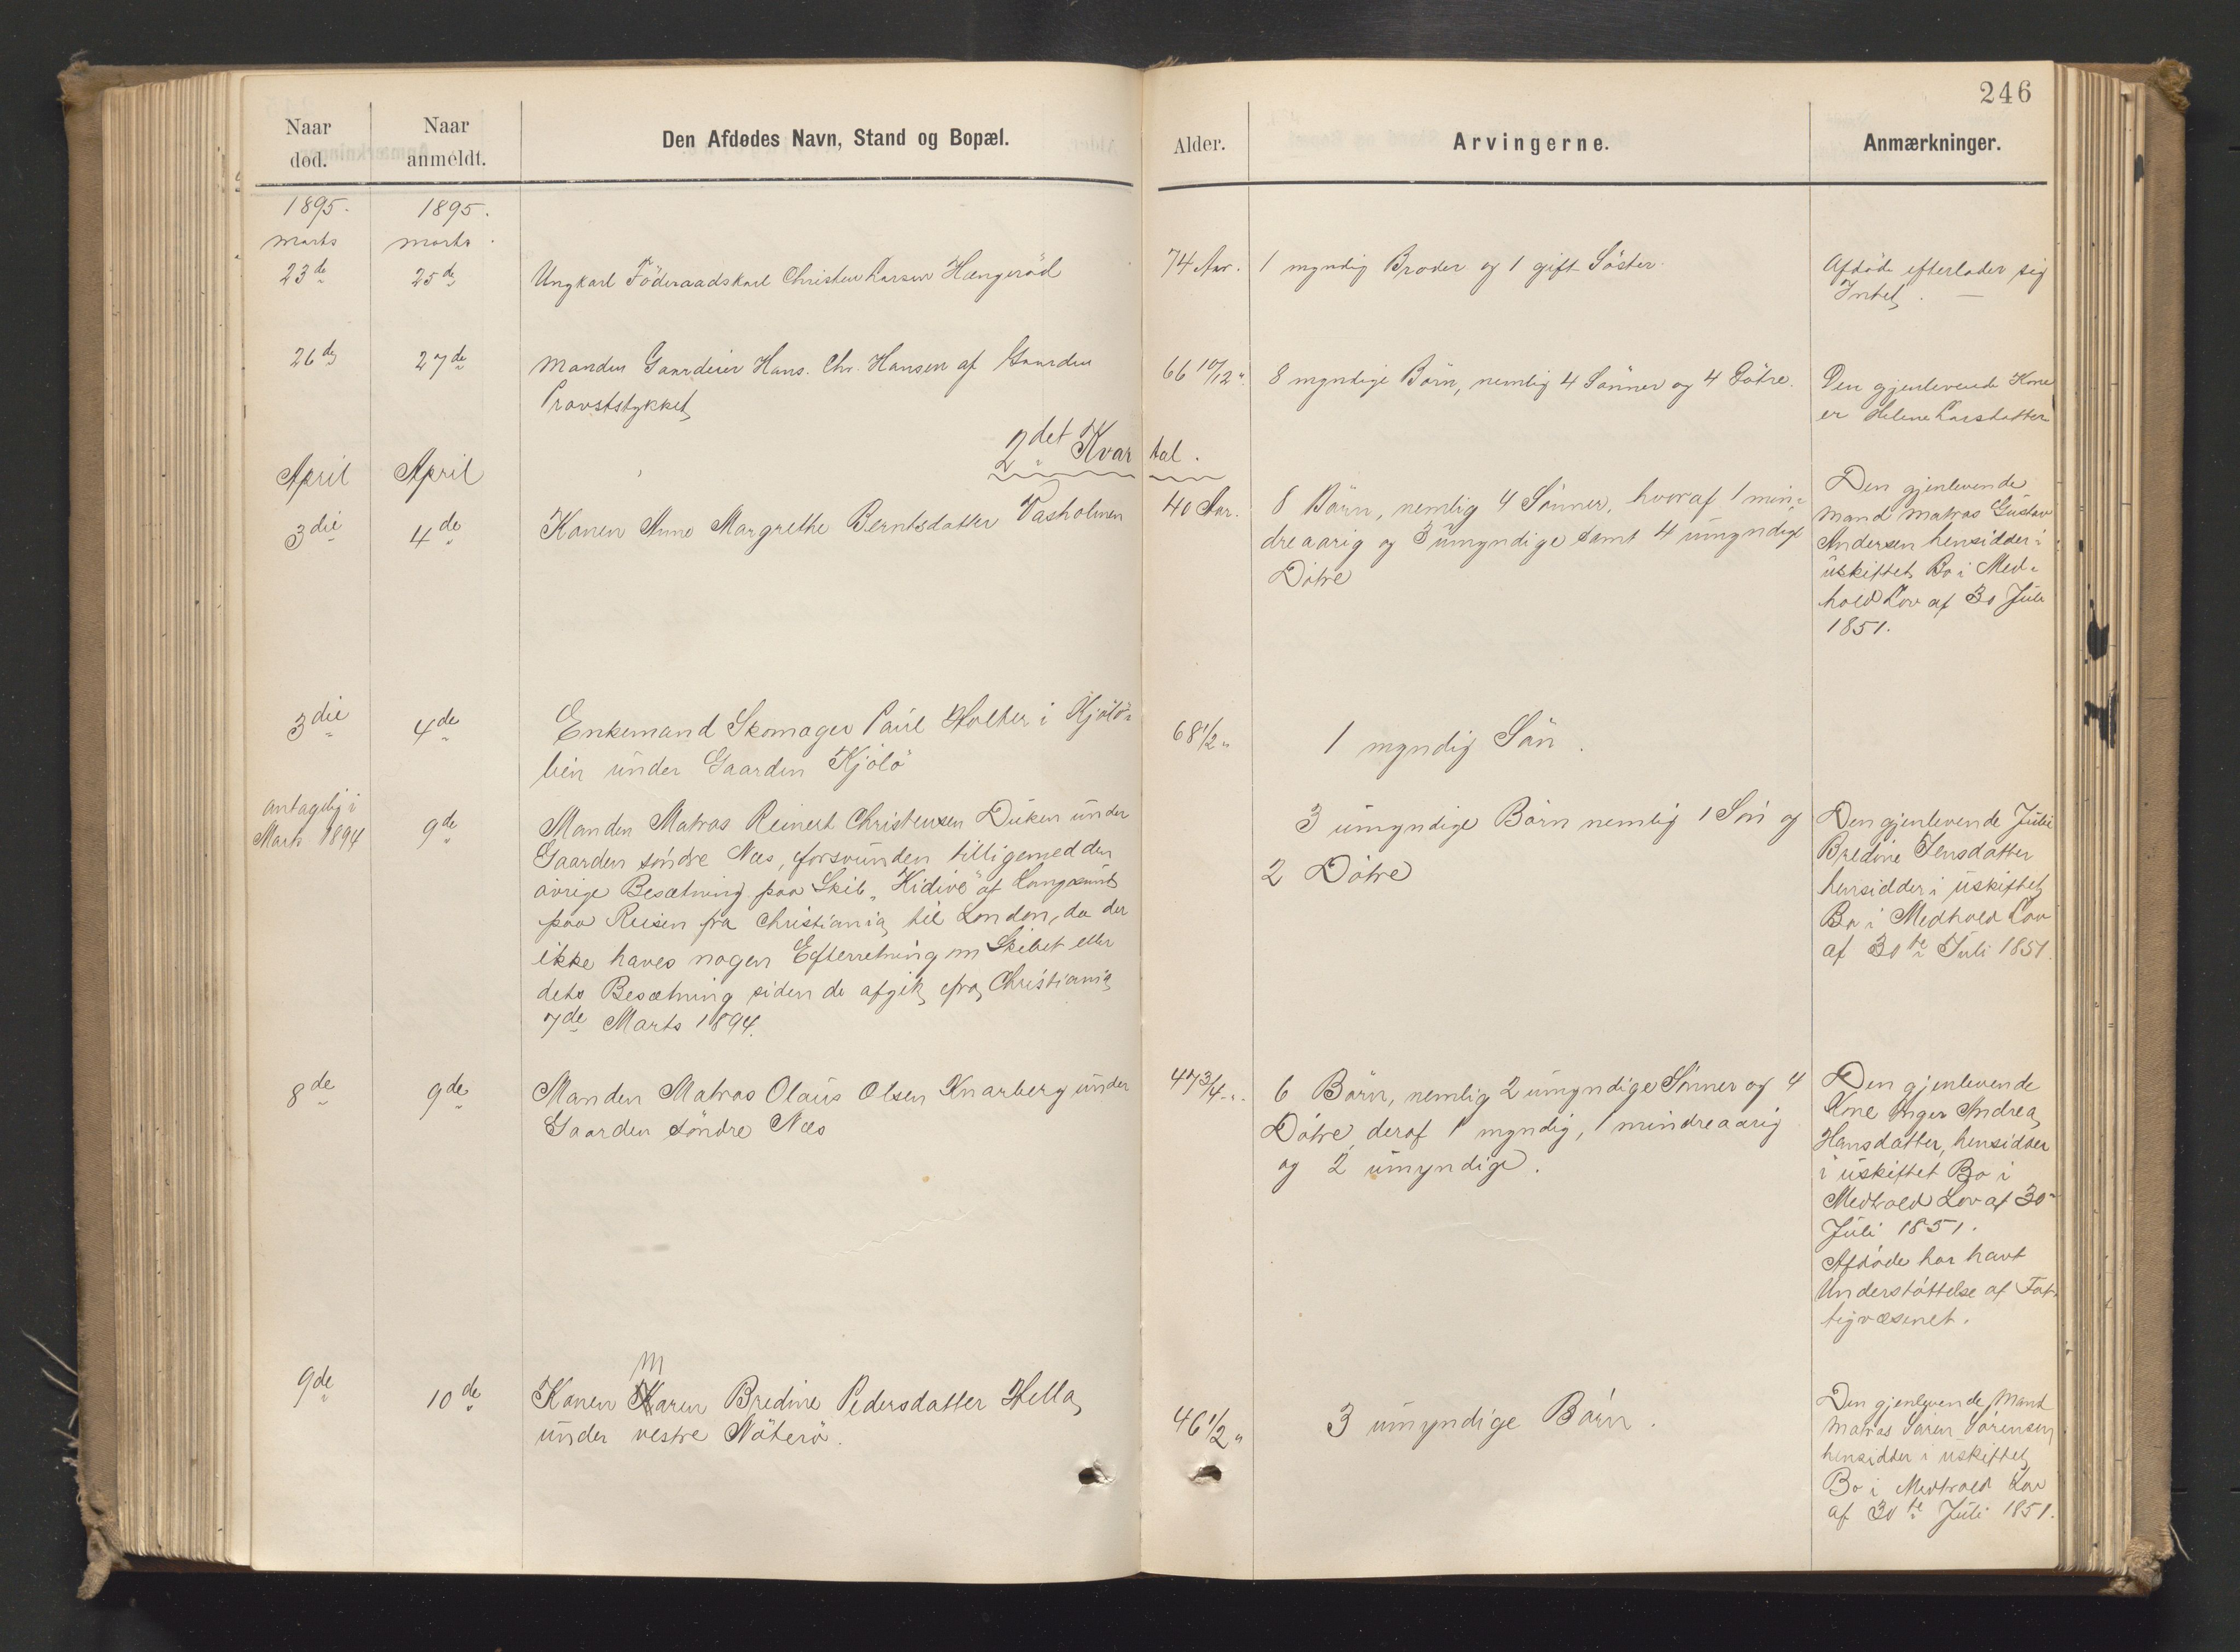 246
Naar død.
Naar anmeldt.
Den Afdødes Navn, Stand og Bopæl.
Alder.
Arvingerne.
Anmærkninger.
1895.
1895.
Marts
Marts.
23de
25de
Ungkarl Föderaadskarl Christen Larsen Hængeröd
74 Aar.
1 myndig Broder og 1 gift Söster.
Afdøde efterlader sig
Intet. —
26de
27de
Manden Gaardeier Hans. Chr. Hansen af Gaarden
Provststykket
66 10/12 "
8 myndige Börn, nemlig 4 Sönner og 4 Dötre.
Den gjenlevende Kone
er Helene Larsdatter
2det Kvartal.
April
April
3die
4de
Konen Anne Margrethe Berntsdatter Vasholmen
40 Aar.
8 Börn, nemlig 4 Sönner, hvoraf 1 min-
dreaarig og 3 umyndige samt 4 umyndige
Dötre
Den gjenlevende
Mand Matros Gustav
Andersen hensidder i
uskiftet Bo i Med-
hold Lov af 30 Juli
1851.
3die
4de
Enkemand Skomager Paul Holter i Kjölö-
bein under Gaarden Kjölö
68 1/2 "
1 myndig Sön.
antagelig i
Marts 1894
9de
Manden Matros Reinert Christensen Duken under
Gaarden söndre Næs, forsvunden tilligemed den
øvrige Besætning paa Skib "Kidive" af Langesund
paa Reisen fra Christiania til London, da der
ikke haves nogen Efterretning om Skibet eller
dets Besætning siden de afgik fra Christiania
7de Marts 1894.
3 umyndige Börn nemlig 1 Sön og
2 Dötre
Den gjenlevende Julie
Bredine Jensdatter
hensidder i uskiftet
Bo i Medhold Lov
af 30te Juli 1851.
8de
9de
Manden Matros Olaus Olsen Knarberg under
Gaarden söndre Næs
47 3/4 "
6 Börn, nemlig 2 umyndige Sönner og 4
Dötre, deraf 1 myndig, 1 mindreaarig
og 2 umyndige.
Den gjenlevende
Kone Inger Andrea
Hansdatter, hensidder
i uskiftet Bo i
Medhold Lov af 30
Juli 1851.
Afdöde har havt
Understöttelse af Fat-
tigvæsenet.
9de
10de
M
Konen Karen Bredine Pedersdatter Hella
under vestre Nöterö.
46 1/2 "
3 umyndige Börn.
Den gjenlevende Mand
Matros Sören Sörensen
hensidder i uskiftet
Bo i Medhold Lov
af 30te Juli 1851.